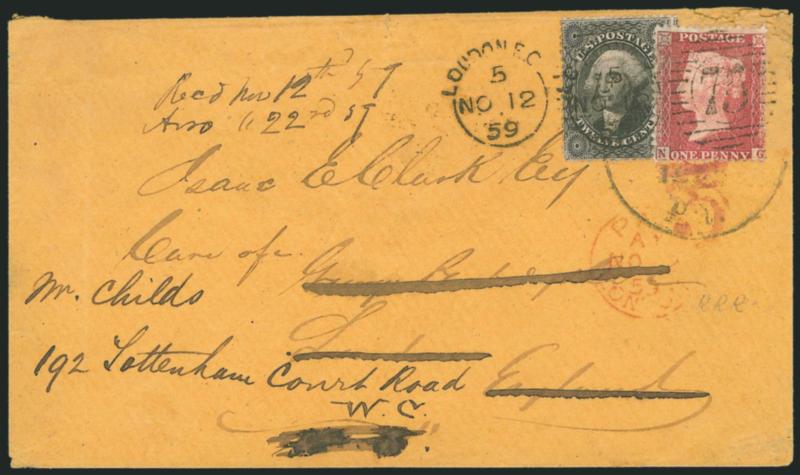 Recd Nov 12th 59
Ans " 22nd 59
LONDON E.C
5
NO 12
59
U.S. POSTAGE
TWELVE CENTS
POSTAGE
73
N G
ONE PENNY
Isaac E Clark Esq
Care of
PAID
Mr. Childs
192 Tottenham Court Road
England
W.C.
RRR